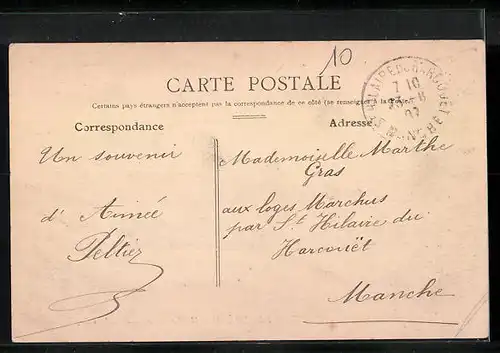 10
CARTE POSTALE
Certains pays étrangers n'acceptent pas la correspondance de ce côté (se renseigner à la Poste)
Correspondance
Adresse
Un souvenir
d'Aimée
Peltier
Mademoiselle Marthe
Gras
aux loges Marchus
par St Hilaire du
Harcouët
Manche
ST HILAIRE DU HARCOUET
MANCHE
7 10
07